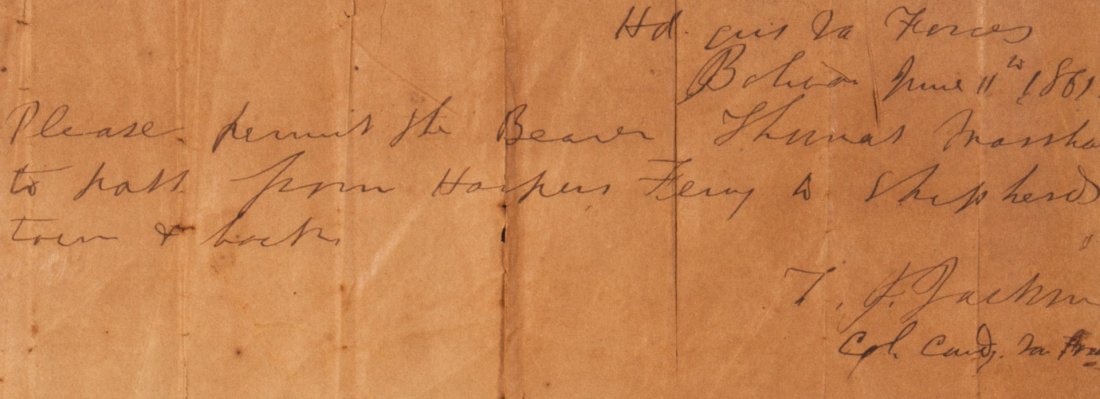 Hd. qrs Va Forces
Bolivar June 11th 1861.
Please permit the Bearer Thomas Marsha
to pass from Harpers Ferry to Shepherds
town & back
T. J. Jackson
Col. Comdg. Va